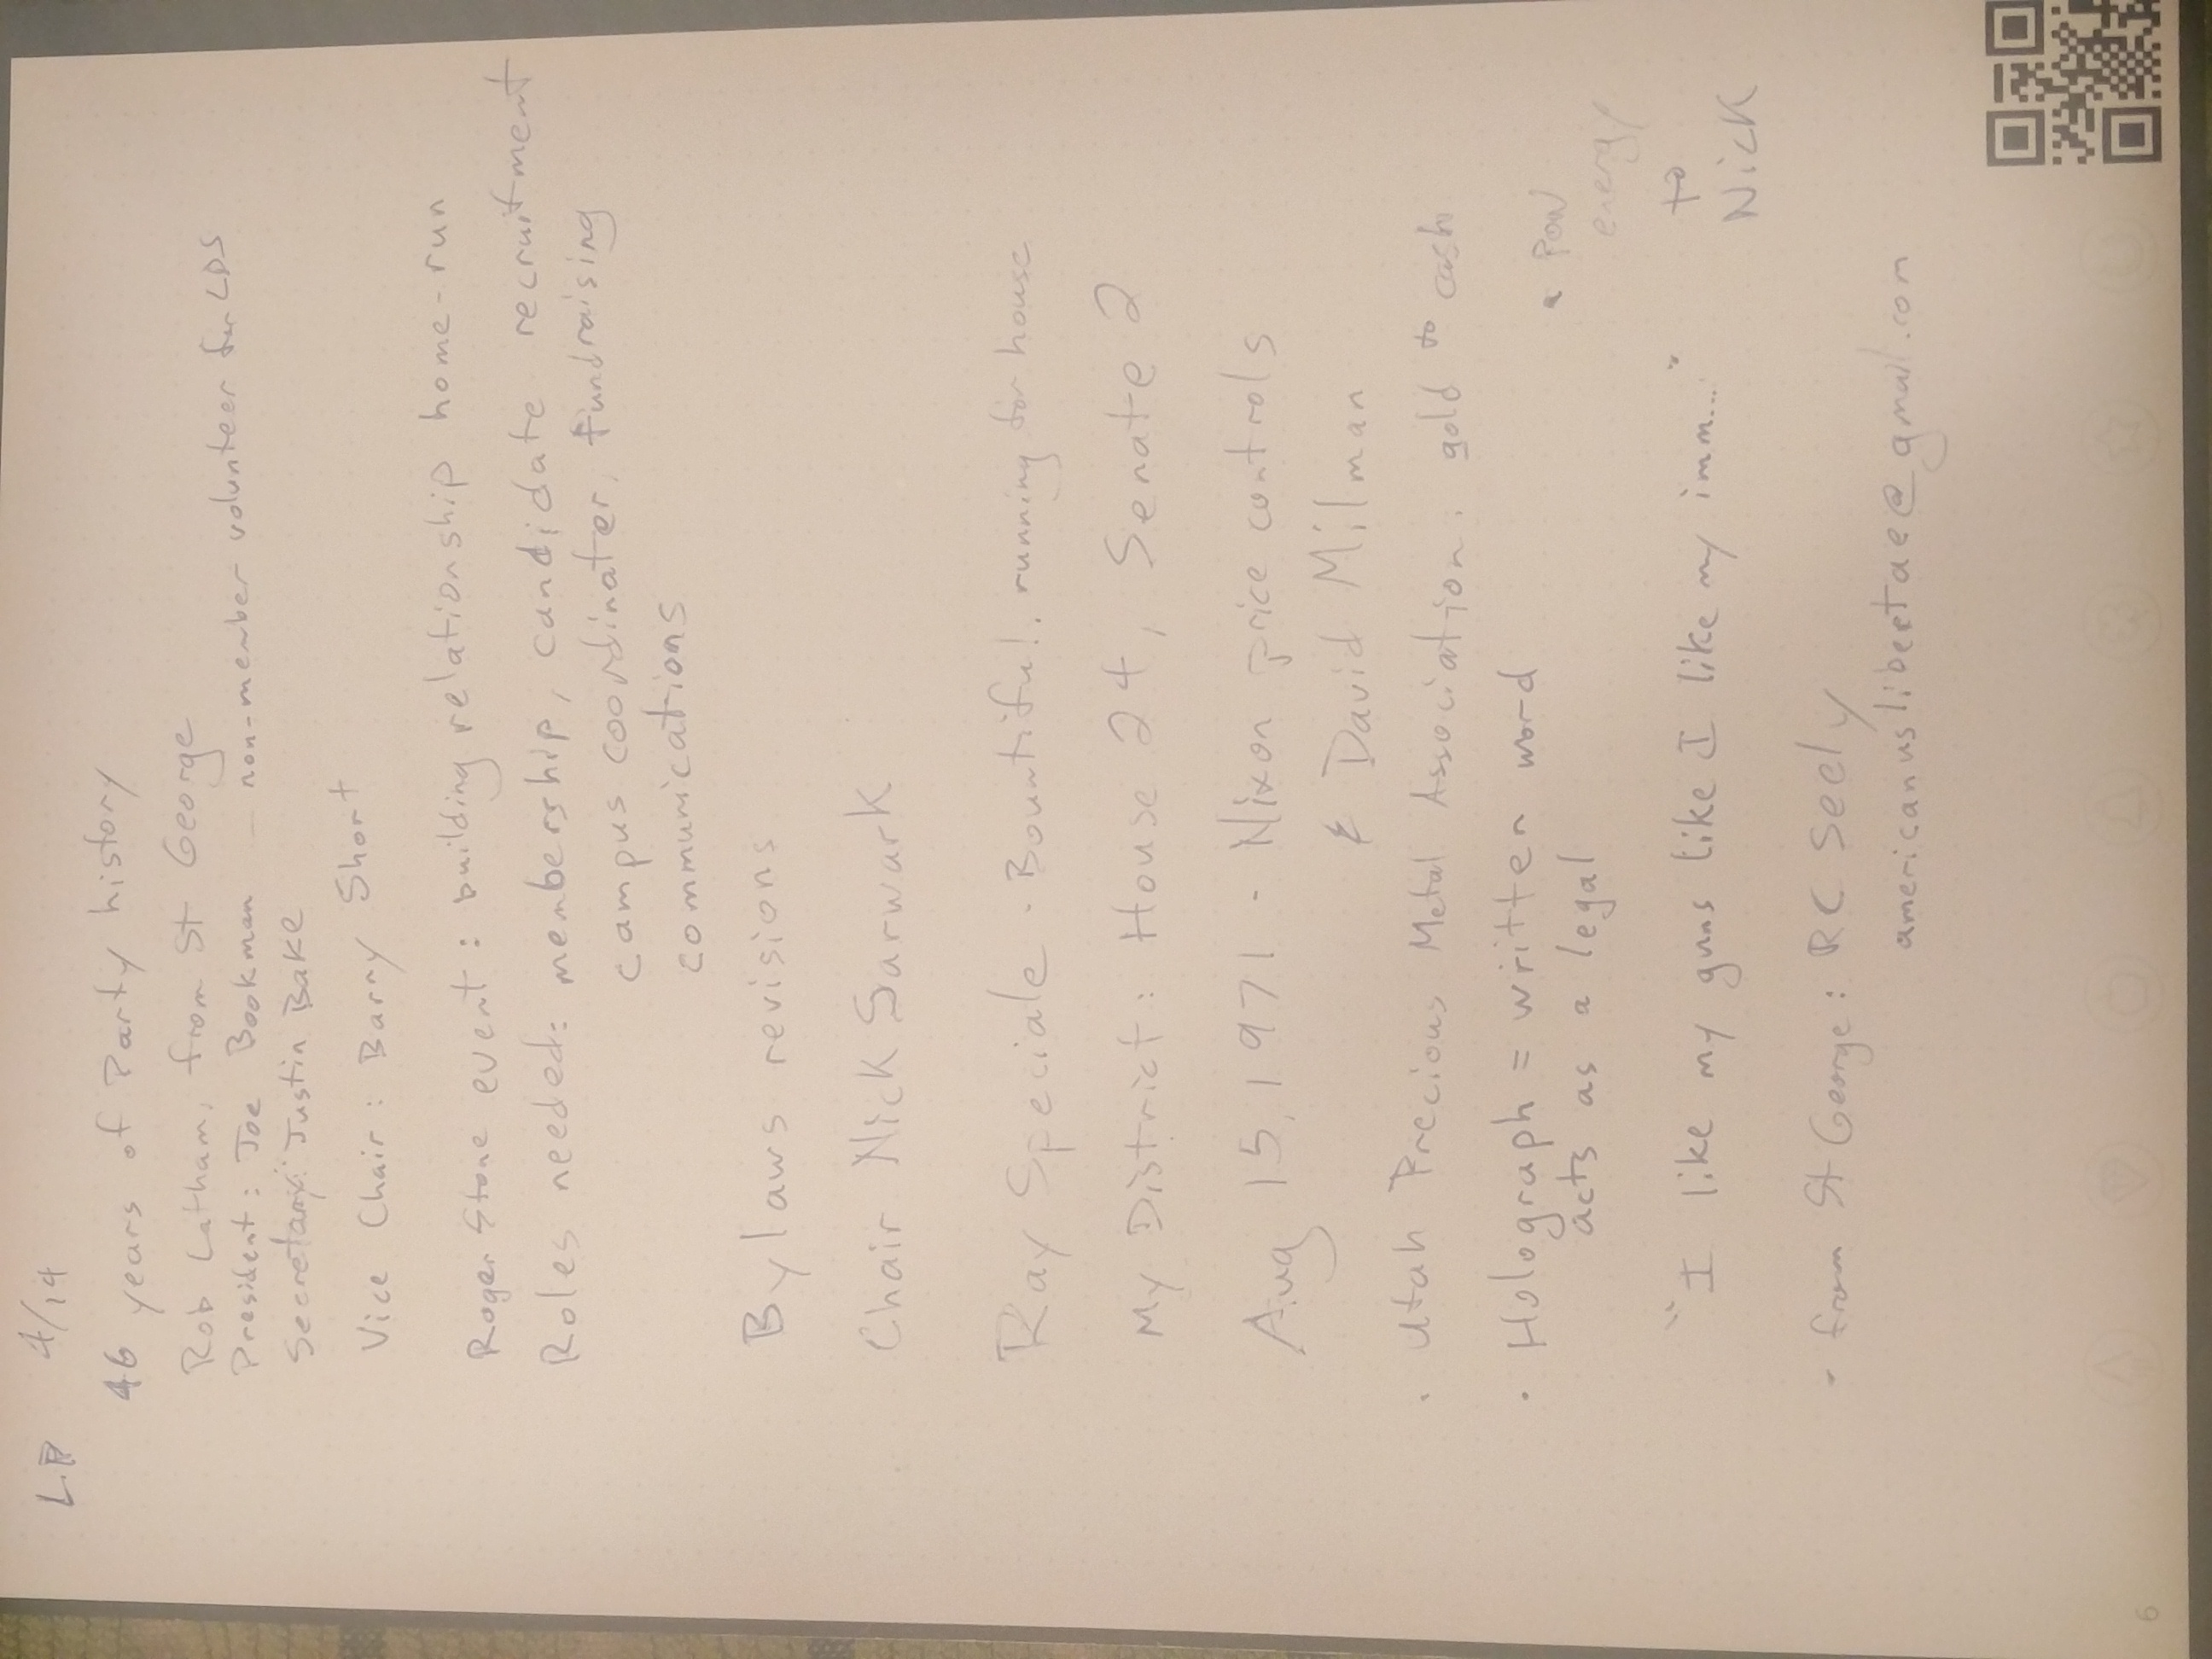 LP 4/14
46 years of Party history
Rob Latham, from St George
President: Joe Bookman — non-member volunteer for LDS
Secretary: Justin Bake
Vice Chair: Barry Short
Roger Stone event: building relationship home-run
Roles needed: membership, candidate recruitment
campus coordinater, fundraising
communications
Bylaws revisions
Chair Nick Sarwark
Ray Speciale · Bountiful. running for house
My District: House 24, Senate 2
Aug 15, 1971 - Nixon price controls
& David Milman
· Utah Precious Metal Association: gold to cash
· Holograph = written word
acts as a legal
" Pow
energy
"I like my guns like I like my imm..."
to
Nick
- from St George: RC Seely
americanuslibertae@gmail.com
6